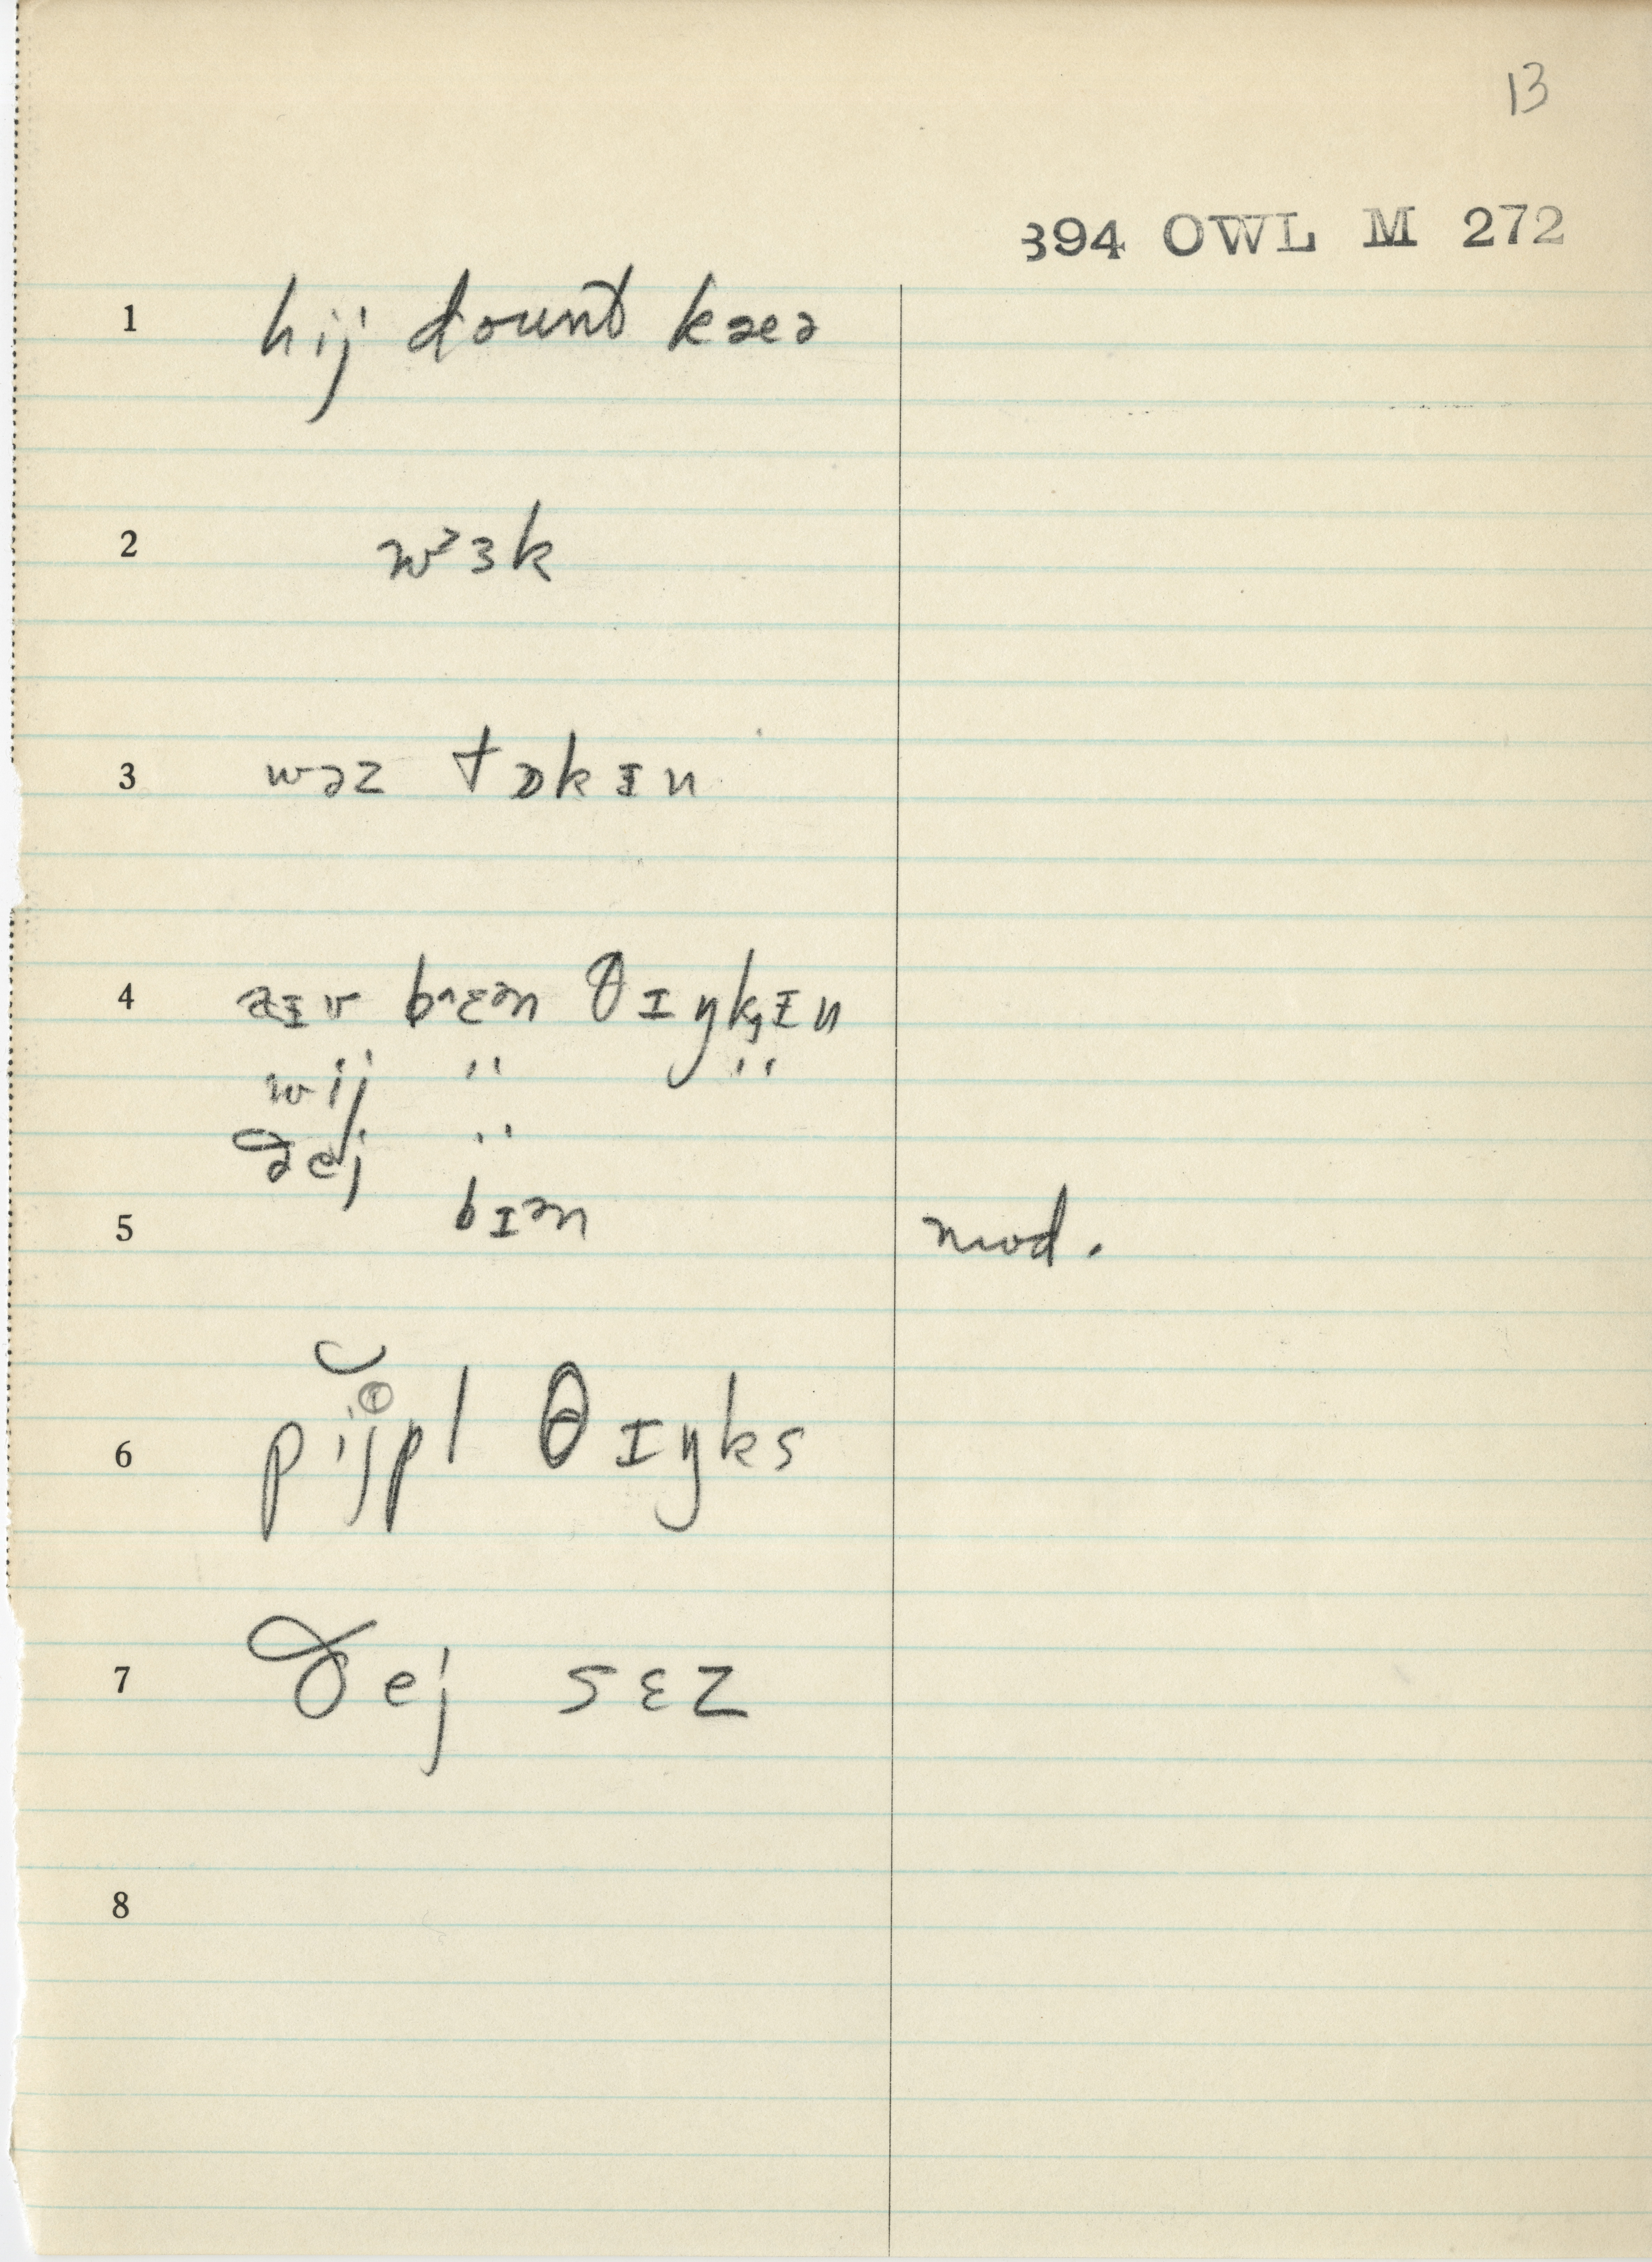 13
394 OWL M 272
1 hij dount kæɚ
2 wɜk
3 wəz tɒkɪn
4 aɪv bɛn θɪŋkɪn
wij " "
ðej "
5 bɪn mod.
6 pijpl θɪŋks
7 ðej sɛz
8